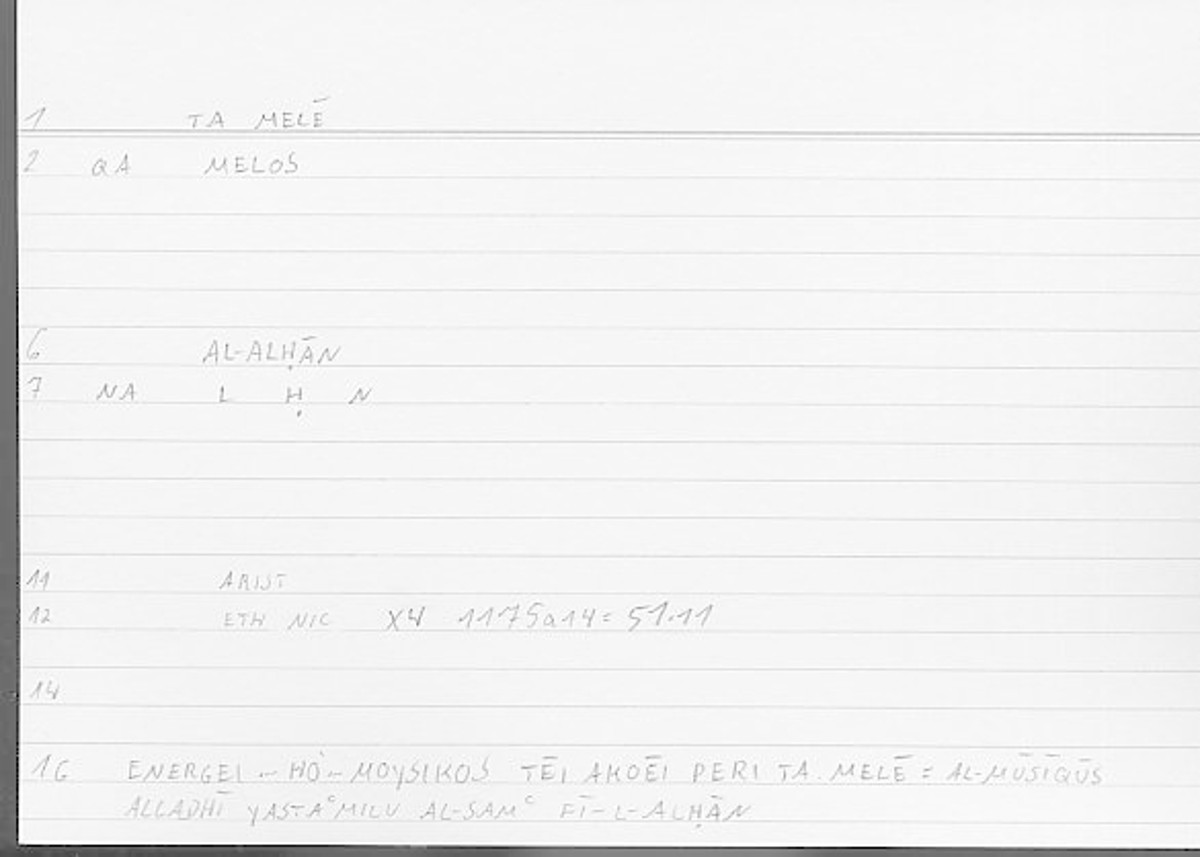 1 TA MELĒ
2 QA MELOS
6 AL-ALḤĀN
7 NA L Ḥ N
11 ARIST
12 ETH NIC X4 1175a14 = 51.11
14
16 ENERGEI – HÒ – MOYSIKOS TĒI AKOĒI PERI TA MELĒ = AL-MŪSĪQŪS
ALLADHĪ YASTAᶜMILU AL-SAMᶜ FĪ-L-ALḤĀN